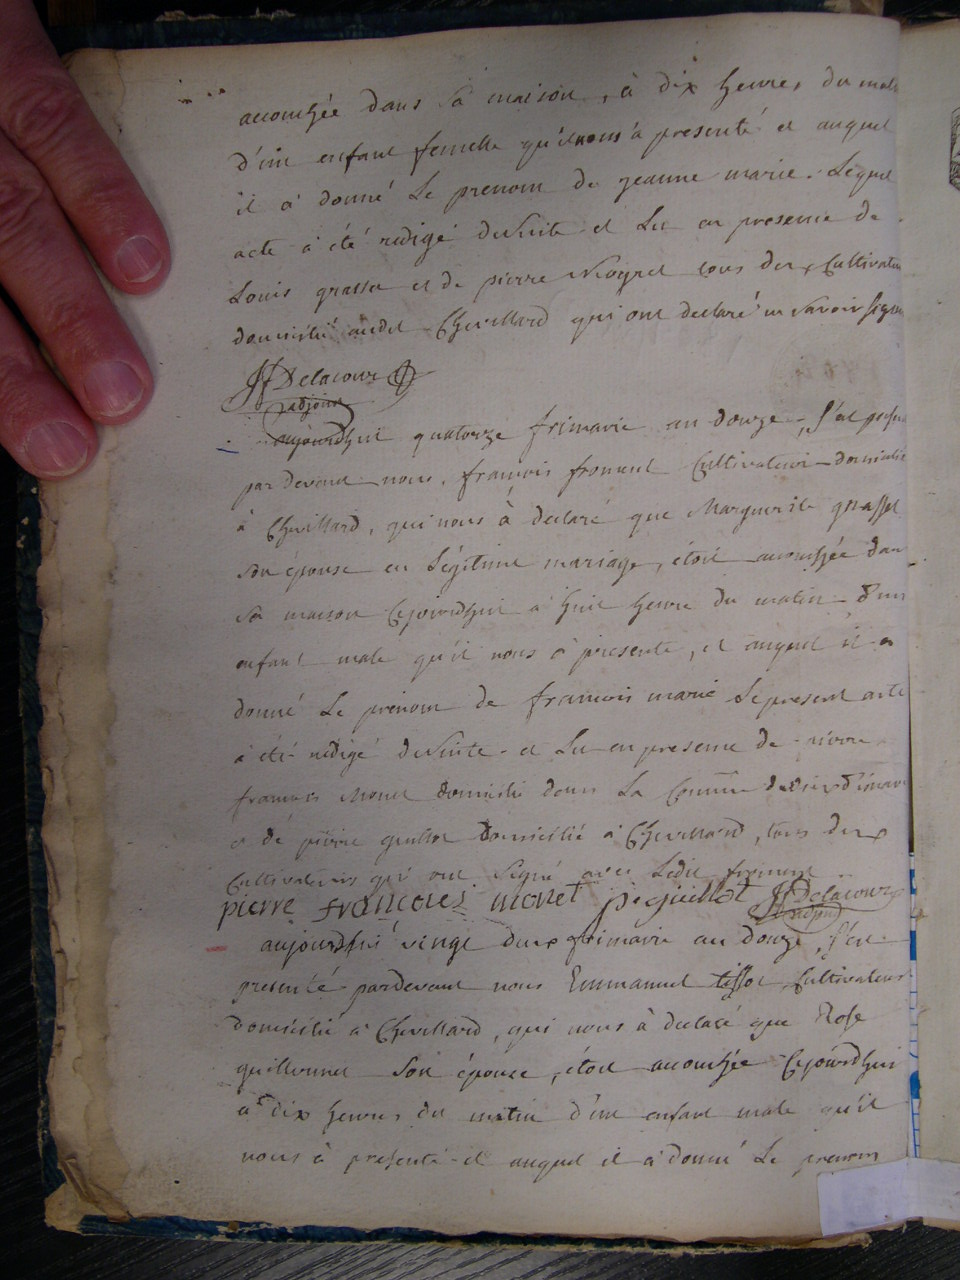 accouchée dans sa maison, à dix heures du matin
d'un enfant femelle qu'il nous à presenté et auquel
il à donné Le prenom de jeanne marie. Lequel
acte à été redigé de suite et Lu en presence de
Louis grasset et de pierre tous deux Cultivateurs
domicilié audit Chevillard qui ont declaré ne savoir signer
JJ Delacour
adjoint
aujourdhui quatorze frimaire an douze, s'est présenté
par devant nous, francois froment Cultivateur domicilié
à Chevillard, qui nous à declaré que Marguerite grasset
son épouse en Légitime mariage, étoit accouchée dans
sa maison Cejourdhui à huit heure du matin d'un
enfant male qu'il nous à presenté, et auquel il a
donné Le prenom de francois marie Le present acte
à été redigé de suite et Lu en presence de pierre
francois Monet domicilié dans La Comm̄e
et de pierre guillot domicilié à Chevillard, tous deux
Cultivateurs qui ont signé avec Ledit froment
pierre francoies monet p guillot JJ Delacour
adjoint
aujourdhui vingt deux frimaire an douze, s'est
presenté pardevant nous Emmanuel tissot Cultivateur
domicilié à Chevillard, qui nous à declaré que Rose
guillermet son épouse, étoit accouchée Cejourdhui
à dix heures du matin d'un enfant male qu'il
nous à presenté et auquel il à donné Le prenom